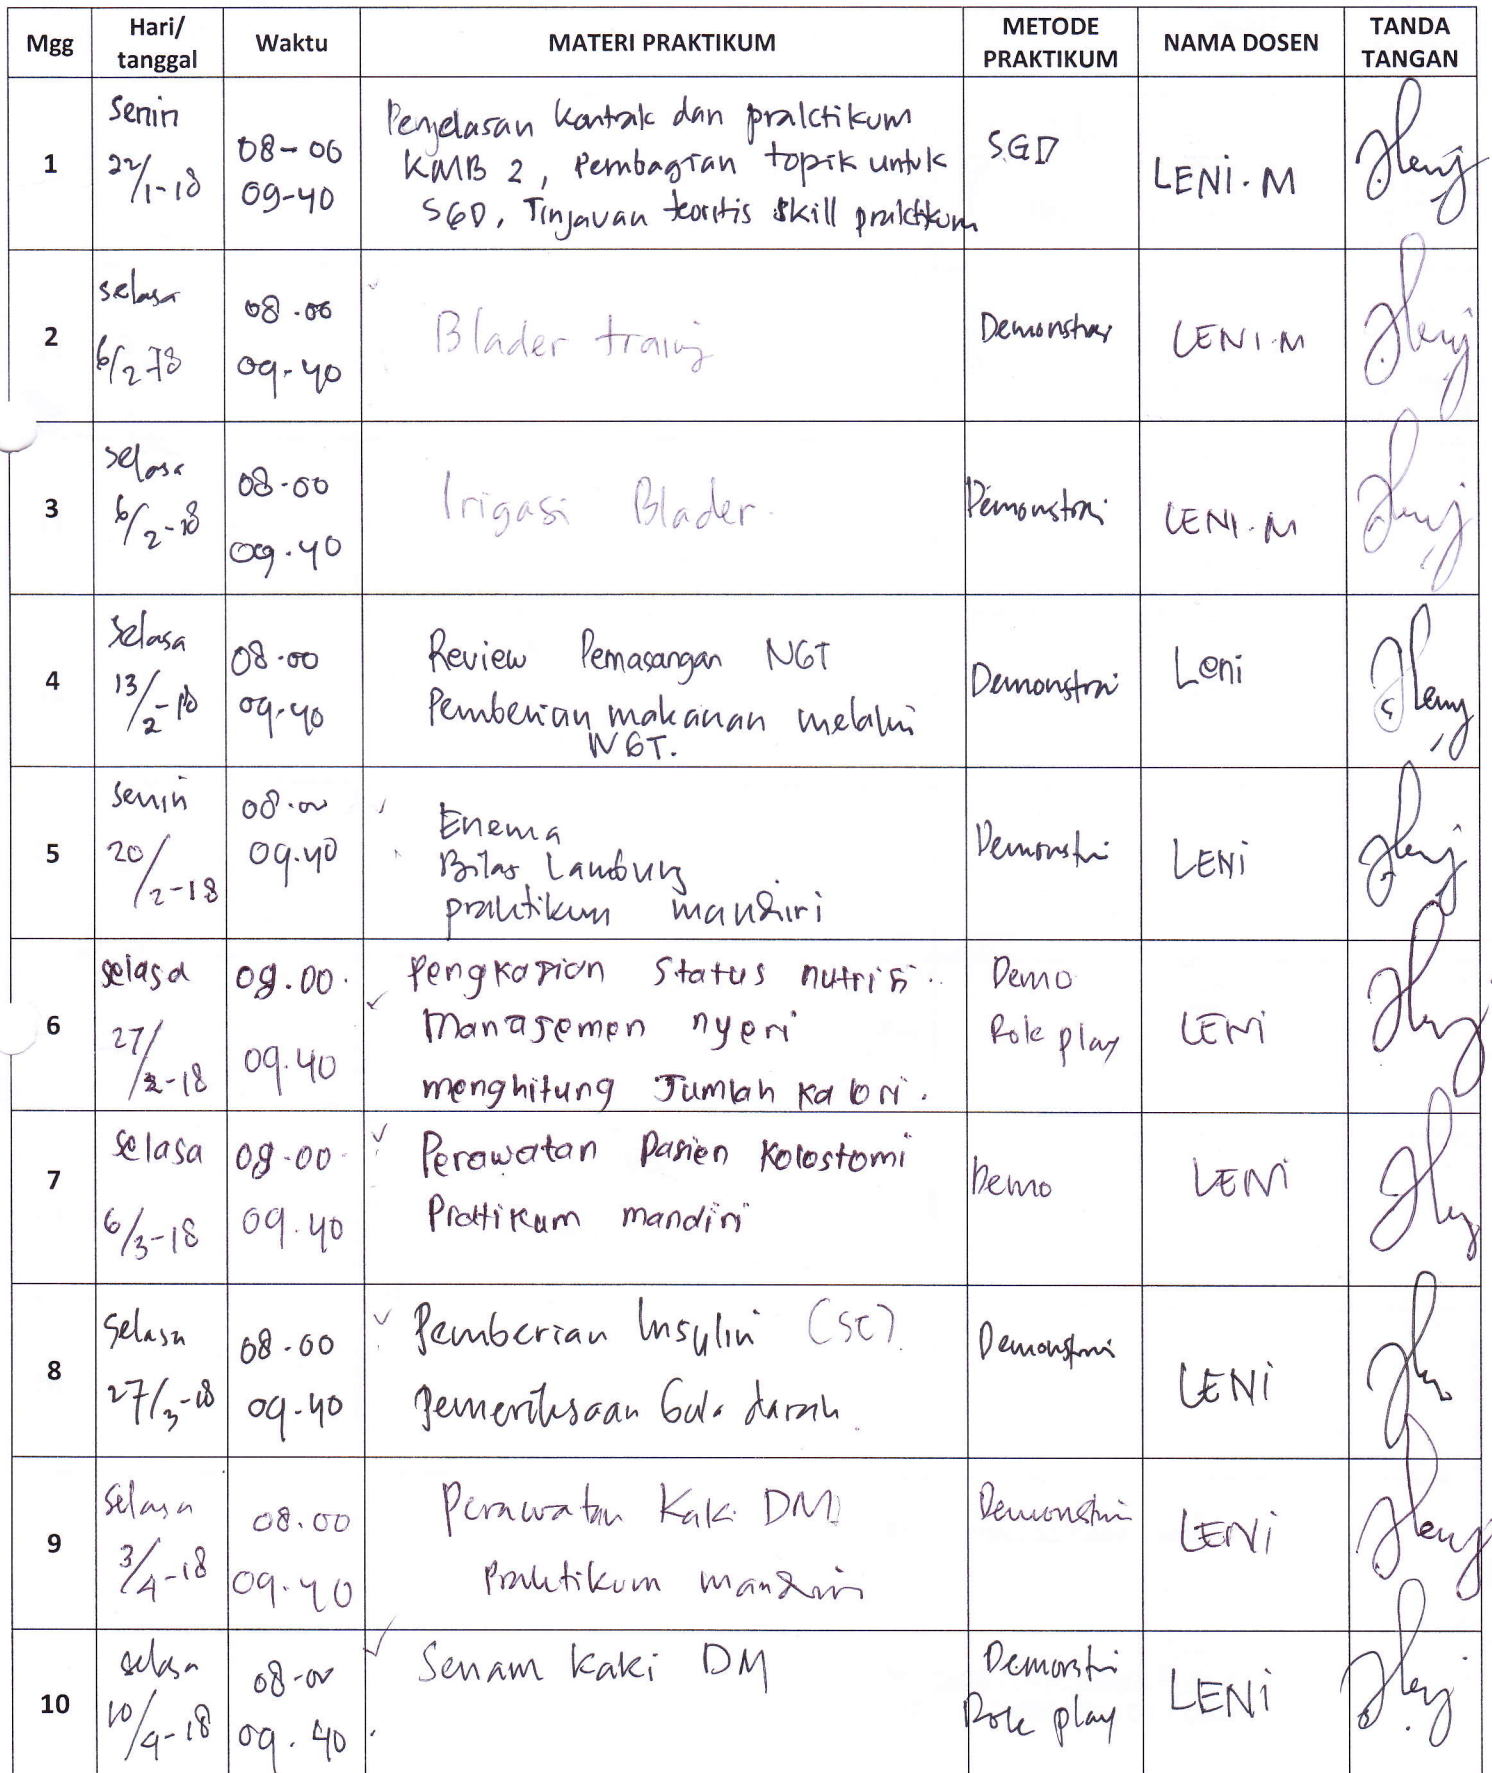 Mgg Hari/ tanggal Waktu MATERI PRAKTIKUM METODE PRAKTIKUM NAMA DOSEN TANDA TANGAN
1
Senin
22/1-18
08-00
09-40
Penjelasan kontrak dan praktikum
KMB 2, Pembagian topik untuk
SGD, Tinjauan teoritis skill praktikum
SGD
LENI.M
2
selasa
6/2-18
08.00
09-40
Blader traing
Demonstrasi
LENI.M
3
selasa
6/2-18
08-00
09.40
Irigasi Blader.
Demonstrasi
LENI.M
4
Selasa
13/2-18
08.00
09.40
Review Pemasangan NGT
Pemberian makanan melalui
NGT.
Demonstrasi
Leni
5
senin
20/2-18
08.00
09.40
Enema
Bilas Lambung
praktikum mandiri
Demonstrasi
LENI
6
selasa
27/2-18
08.00.
09.40
Pengkajian Status nutrisi
Manajemen nyeri
menghitung Jumlah kalori.
Demo
Role play
LENI
7
selasa
6/3-18
08-00
09.40
Perawatan Pasien Kolostomi
Praktikum mandiri
Demo
LENI
8
Selasa
27/3-18
08.00
09.40
Pemberian Insylin (SC)
Pemeriksaan Gula darah
Demonstrasi
LENI
9
Selasa
3/4-18
08.00
09.40
Perawatan Kaki DM
Praktikum mandiri
Demonstrasi
LENI
10
selasa
10/4-18
08-00
09.40
Senam Kaki DM
Demonstrasi
Role play
LENI